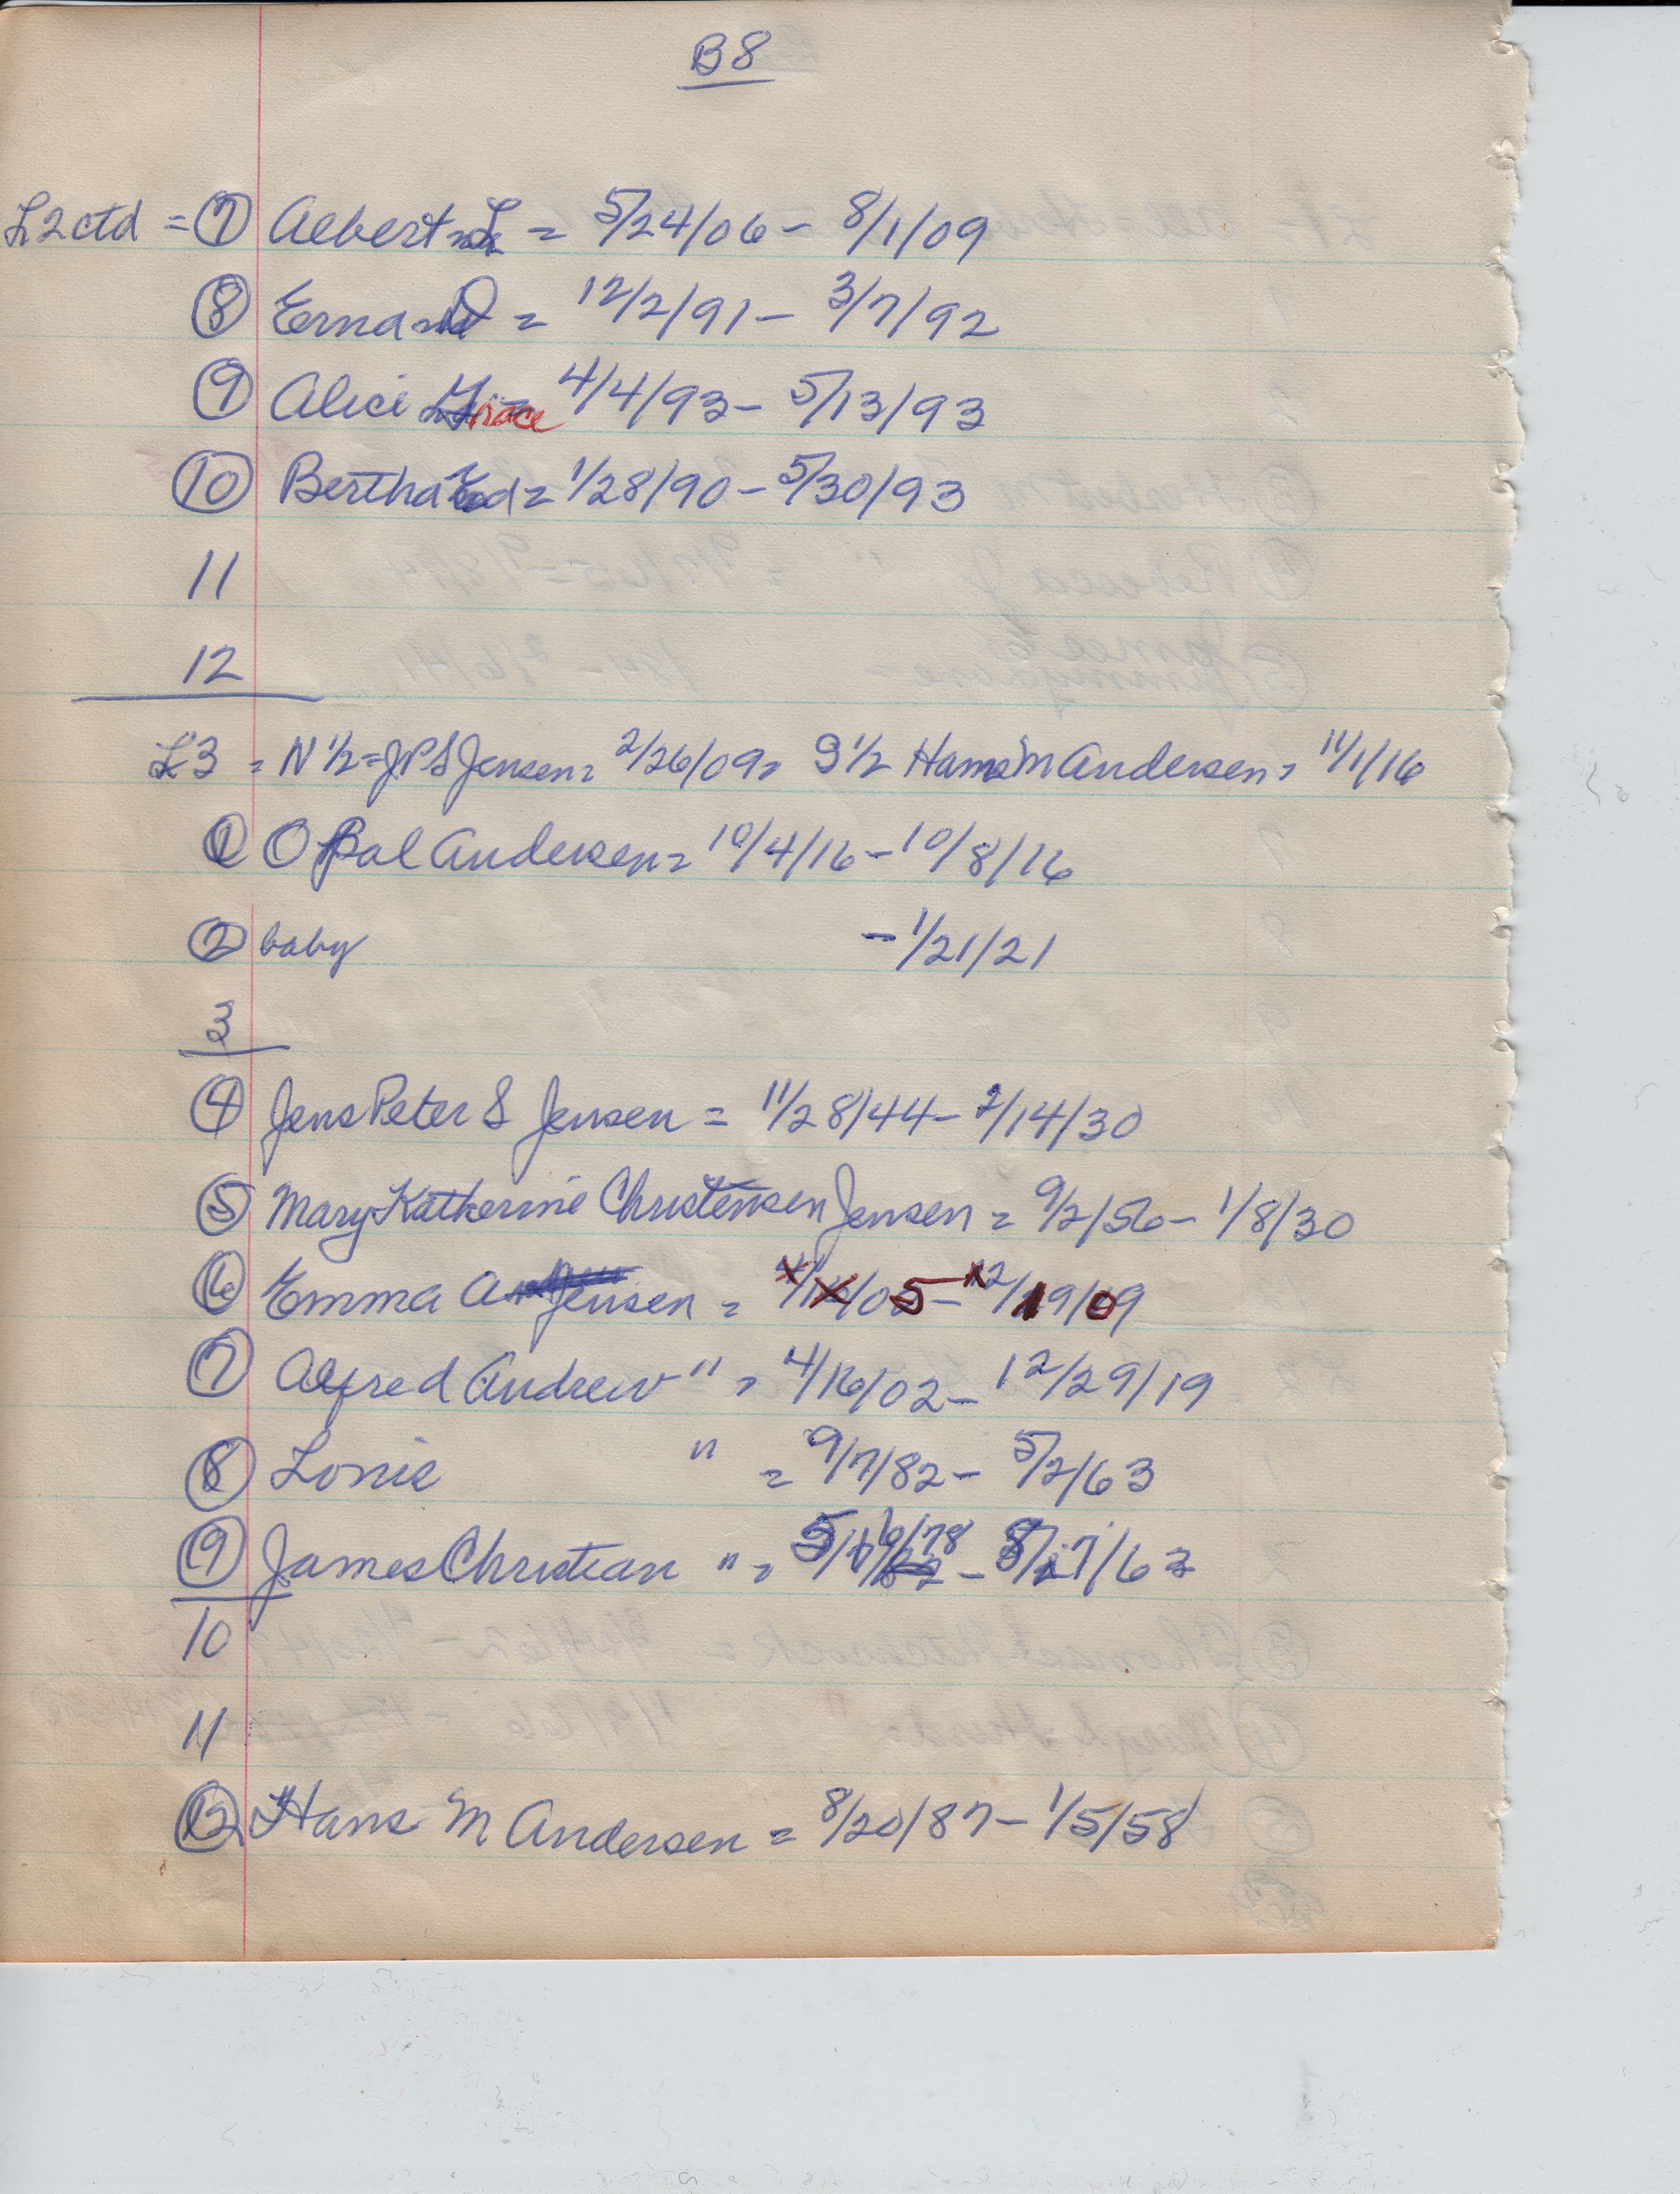 B8
L2 ctd = 7 Albert L = 5/24/06 - 8/1/09
8 Erna D = 12/2/91 - 3/7/92
9 Alice Grace 4/4/93 - 5/13/93
10 Bertha = 1/28/90 - 5/30/93
11
12
L3 = N 1/2 = JPS Jensen = 2/26/09, S 1/2 Hans M Andersen, 11/1/16
1 Opal Andersen = 10/4/16 - 10/8/16
2 baby - 1/21/21
3
4 Jens Peter S Jensen = 11/28/44 - 2/14/30
5 Mary Katherine Christensen Jensen = 9/2/56 - 1/8/30
6 Emma A Jensen = 05 - 12/19/09
7 Alfred Andrew " = 4/16/02 - 12/29/19
8 Lonie " = 9/7/82 - 5/2/63
9 James Christian " = 78 - 8/27/63
10
11
12 Hans M Andersen = 8/20/87 - 1/5/58